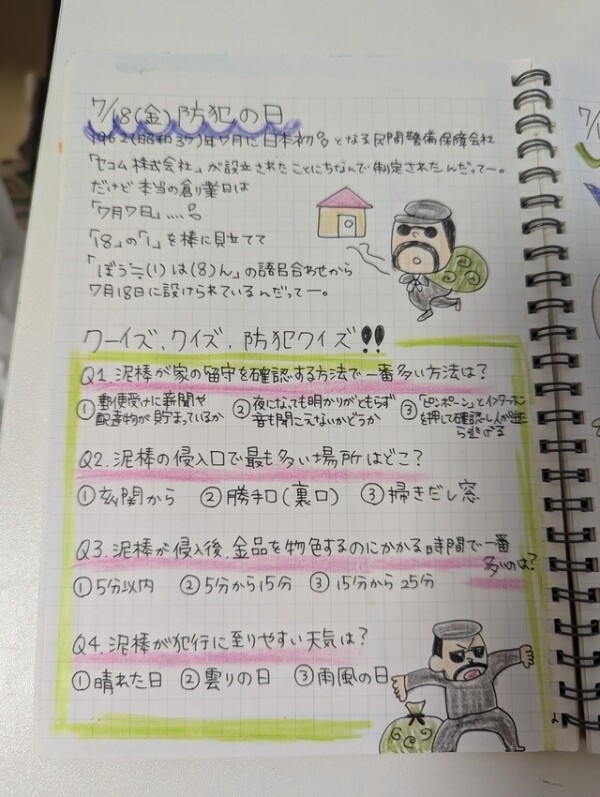 7/18(金)防犯の日
1962(昭和37)年7月に日本初となる民間警備保障会社
「セコム株式会社」が設立されたことにちなんで制定されたんだってー。
だけど本当の創業日は
「7月7日」....
「18」の「1」を棒に見立てて
「ぼう(1)は(8)ん」の語呂合わせから
7月18日に設けられているんだってー。
クーイズ、クイズ、防犯クイズ!!
Q1.泥棒が家の留守を確認する方法で一番多い方法は?
①郵便受けに新聞や配達物が貯まっているか ②夜になっても明かりがともらず音も聞こえないかどうか ③「ピンポーン」とインターホンを押して確認し人が出たら逃げる
Q2.泥棒の侵入口で最も多い場所はどこ?
①玄関から ②勝手口(裏口) ③掃きだし窓
Q3.泥棒が侵入後、金品を物色するのにかかる時間で一番多いのは?
①5分以内 ②5分から15分 ③15分から25分
Q4.泥棒が犯行に至りやすい天気は?
①晴れた日 ②曇りの日 ③雨風の日